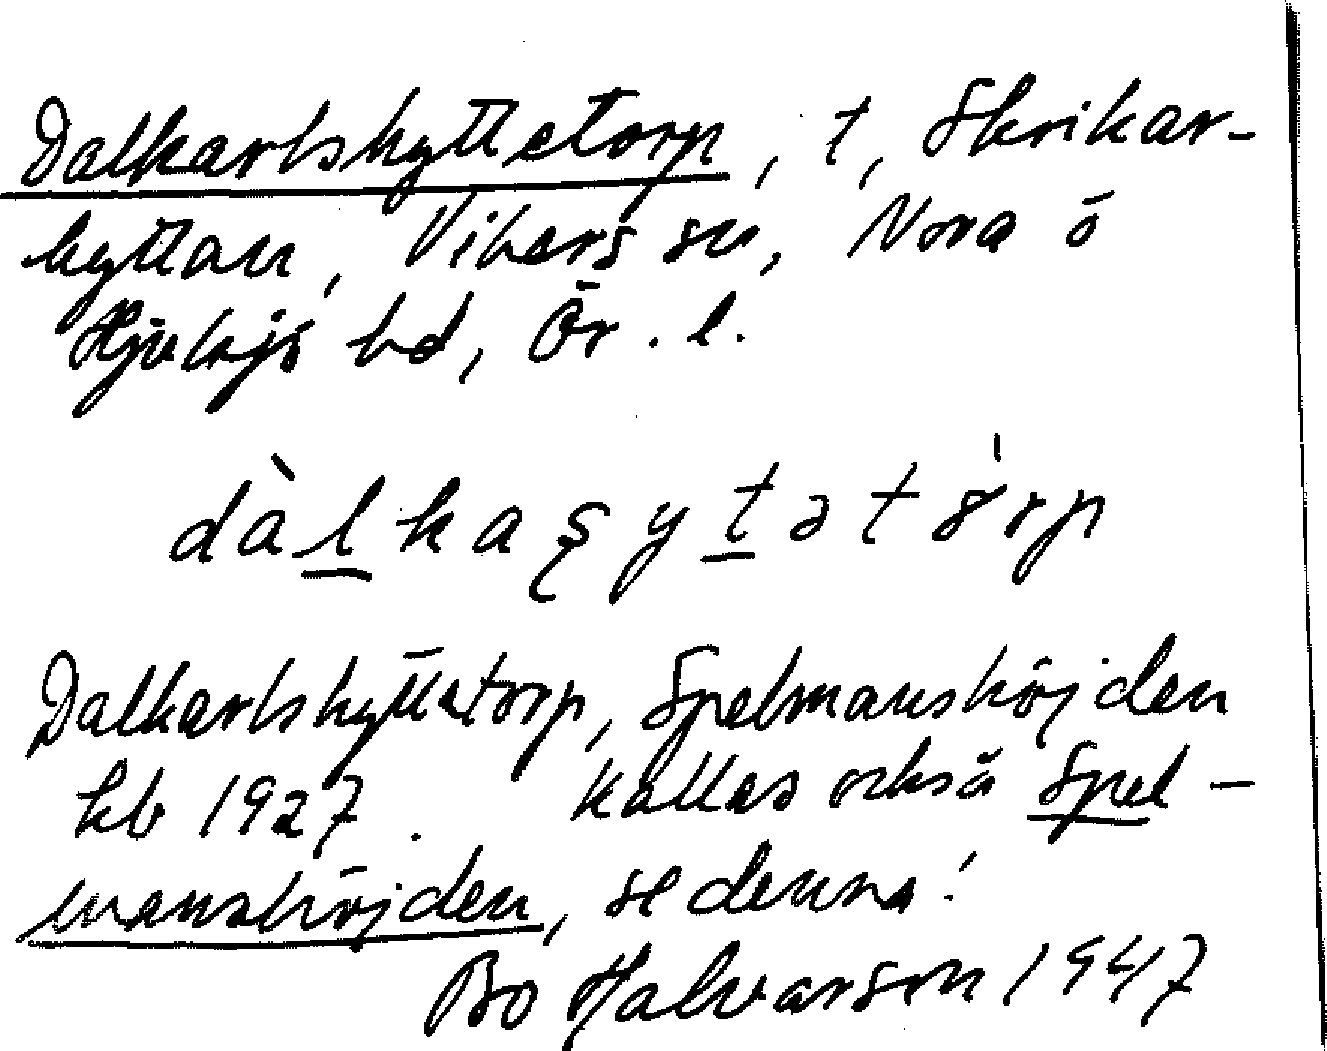 Dalkarlshyttetorp, t, Skrikar-
hyttan, Vikers sn, Nora o
Hjulsjö bd, Ör. l.
dàlkaşytətòrp
Dalkarlshyttetorp, Spelmanshöjden
kb 1927. Kallas också Spel-
manshöjden, se denna!
Bo Halvarson 1947